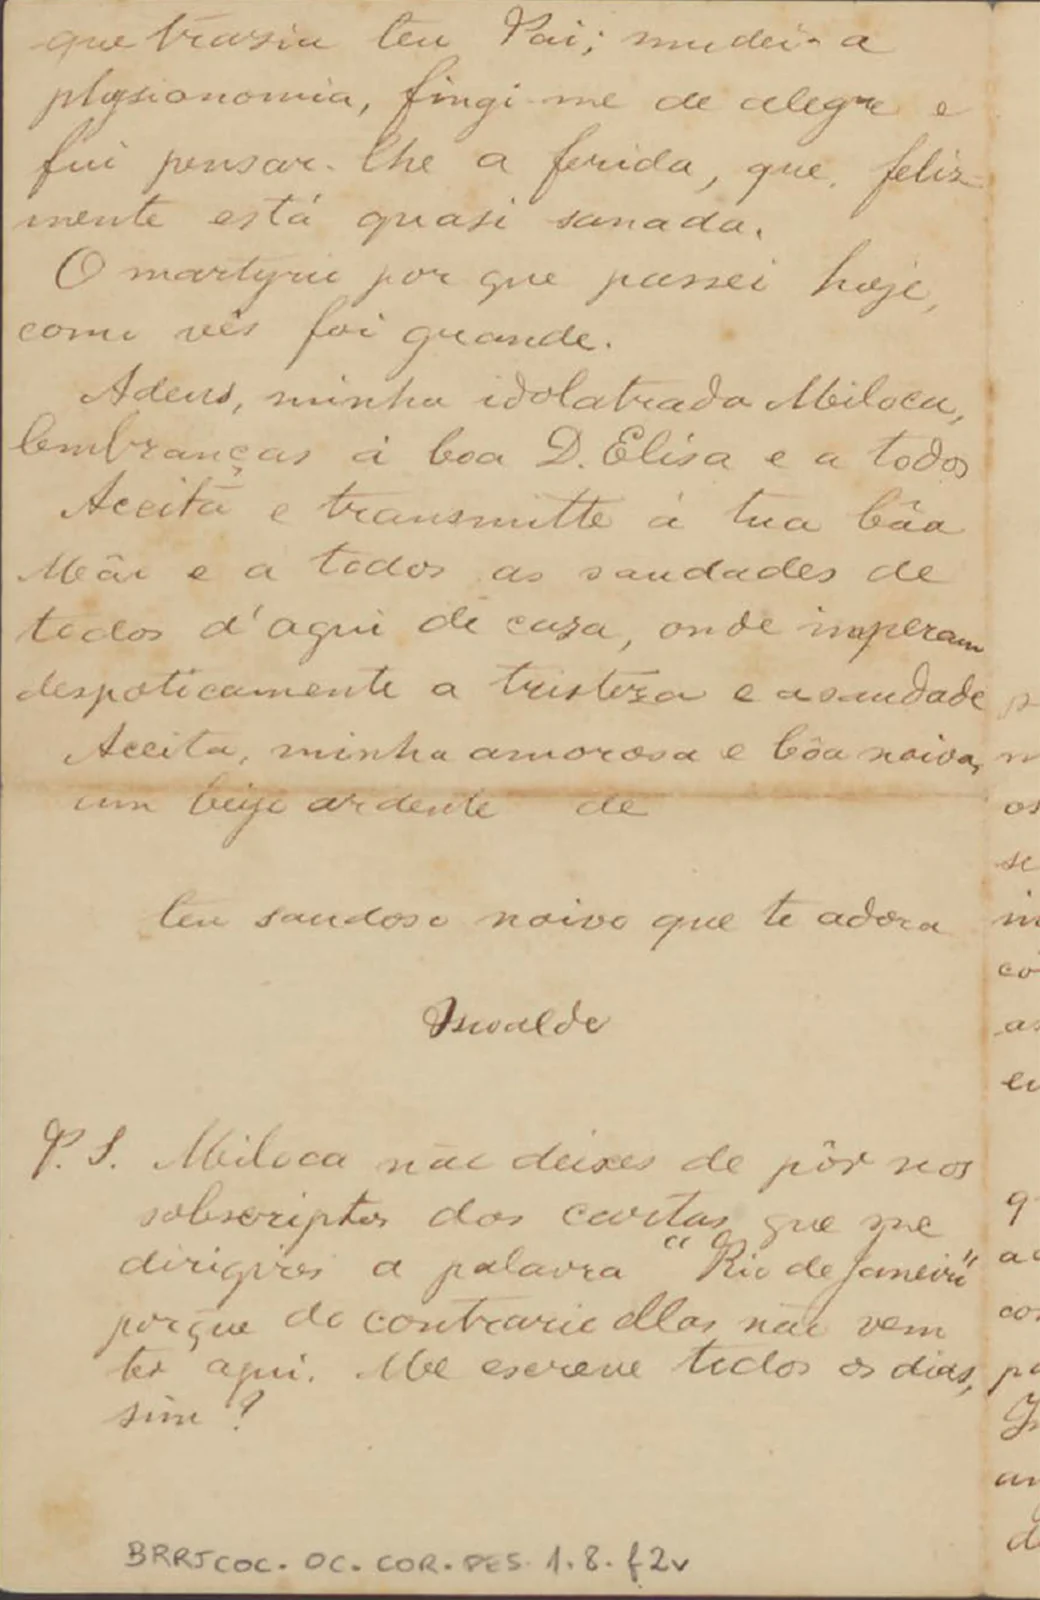 que trasia teu Pai; mudei a
physionomia, fingi-me de alegre e
fui pensar-lhe a ferida, que, feliz-
mente está quasi sanada.
O martyrio por que passei hoje,
como vês foi grande.
Adeus, minha idolatrada Miloca,
lembranças á boa D. Elisa e a todos
Aceita e transmitte á tua bôa
Mãi e a todos as saudades de
todos d'aqui de casa, onde imperam
despoticamente a tristeza e a saudade
Aceita, minha amorosa e bôa noiva,
um beijo ardente de
teu saudoso noivo que te adora
Oswaldo
P. S. Miloca não deixes de pôr nos
sobscriptos das cartas que me
dirigires a palavra "Rio de Janeiro"
porque do contrario ellas não vem
ter aqui. Me escreve todos os dias,
sim?
BRRJCOC. OC. COR. PES. 1. 8. f2v